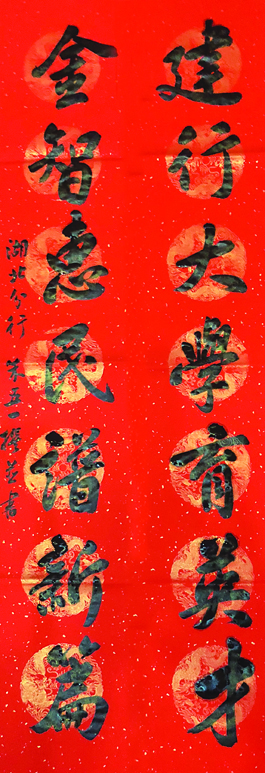 建行大學育英才
金智惠民譜新篇
湖北分行